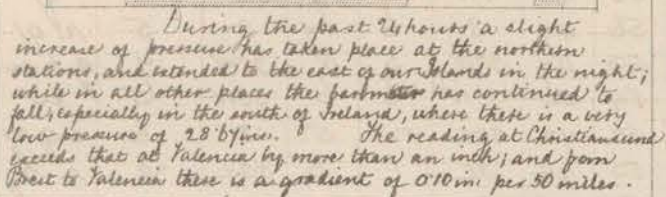 During the past 24 hours a slight
increase of pressure has taken place at the northern
stations, and extended to the east of our Islands in the night;
while in all other places the barometer has continued to
fall, especially in the south of Ireland, where there is a very
low pressure of 28.67 ins. The reading at Christiansund
exceeds that at Valencia by more than an inch; and from
Brest to Valencia there is a gradient of 0.10 in. per 50 miles.